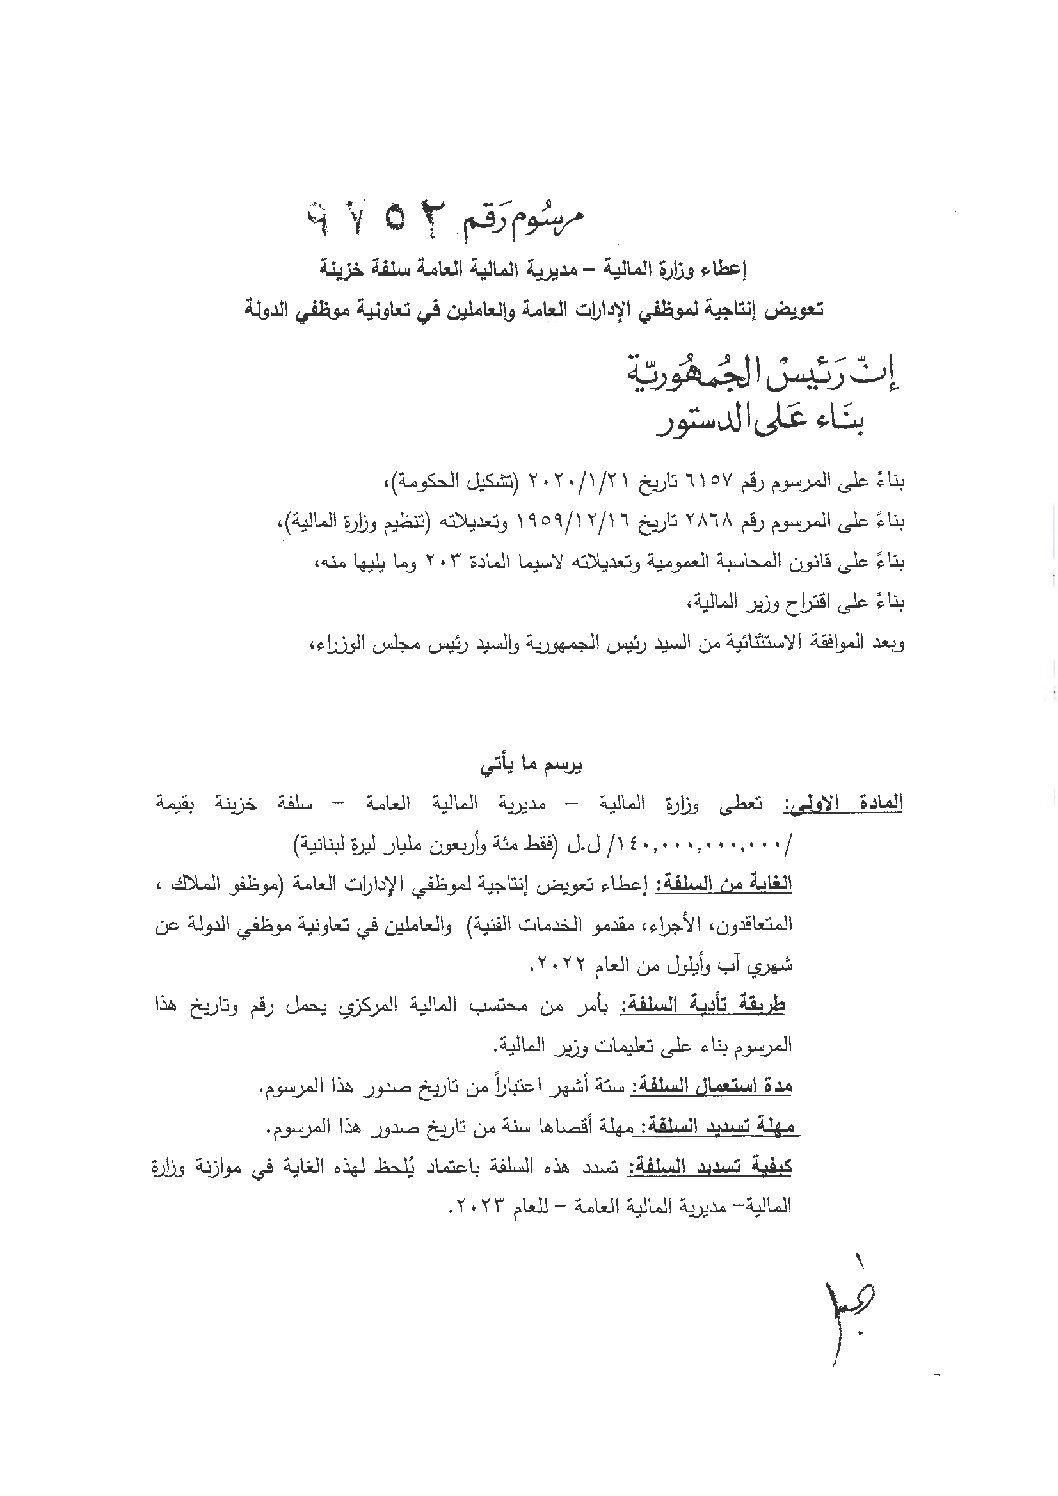 مرسُوم رَقم ٩٧٥٢
إعطاء وزارة المالية – مديرية المالية العامة سلفة خزينة
تعويض إنتاجية لموظفي الإدارات العامة والعاملين في تعاونية موظفي الدولة
إنّ رَئيسْ الجُمهُوريّة
بنَاء عَلى الدستور
بناءً على المرسوم رقم ٦١٥٧ تاريخ ٢٠٢٠/١/٢١ (تشكيل الحكومة)،
بناءً على المرسوم رقم ٢٨٦٨ تاريخ ١٩٥٩/١٢/١٦ وتعديلاته (تنظيم وزارة المالية)،
بناءً على قانون المحاسبة العمومية وتعديلاته لاسيما المادة ٢٠٣ وما يليها منه،
بناءً على اقتراح وزير المالية،
وبعد الموافقة الاستثنائية من السيد رئيس الجمهورية والسيد رئيس مجلس الوزراء،
يرسم ما يأتي
المادة الاولى: تعطى وزارة المالية – مديرية المالية العامة – سلفة خزينة بقيمة
/١٤٠,٠٠٠,٠٠٠,٠٠٠/ ل.ل (فقط مئة وأربعون مليار ليرة لبنانية)
الغاية من السلفة: إعطاء تعويض إنتاجية لموظفي الإدارات العامة (موظفو الملاك ،
المتعاقدون، الأجراء، مقدمو الخدمات الفنية) والعاملين في تعاونية موظفي الدولة عن
شهري آب وأيلول من العام ٢٠٢٢.
طريقة تأدية السلفة: بأمر من محتسب المالية المركزي يحمل رقم وتاريخ هذا
المرسوم بناء على تعليمات وزير المالية.
مدة استعمال السلفة: ستة أشهر اعتباراً من تاريخ صدور هذا المرسوم.
مهلة تسديد السلفة: مهلة أقصاها سنة من تاريخ صدور هذا المرسوم.
كيفية تسديد السلفة: تسدد هذه السلفة باعتماد يُلحظ لهذه الغاية في موازنة وزارة
المالية– مديرية المالية العامة – للعام ٢٠٢٣.